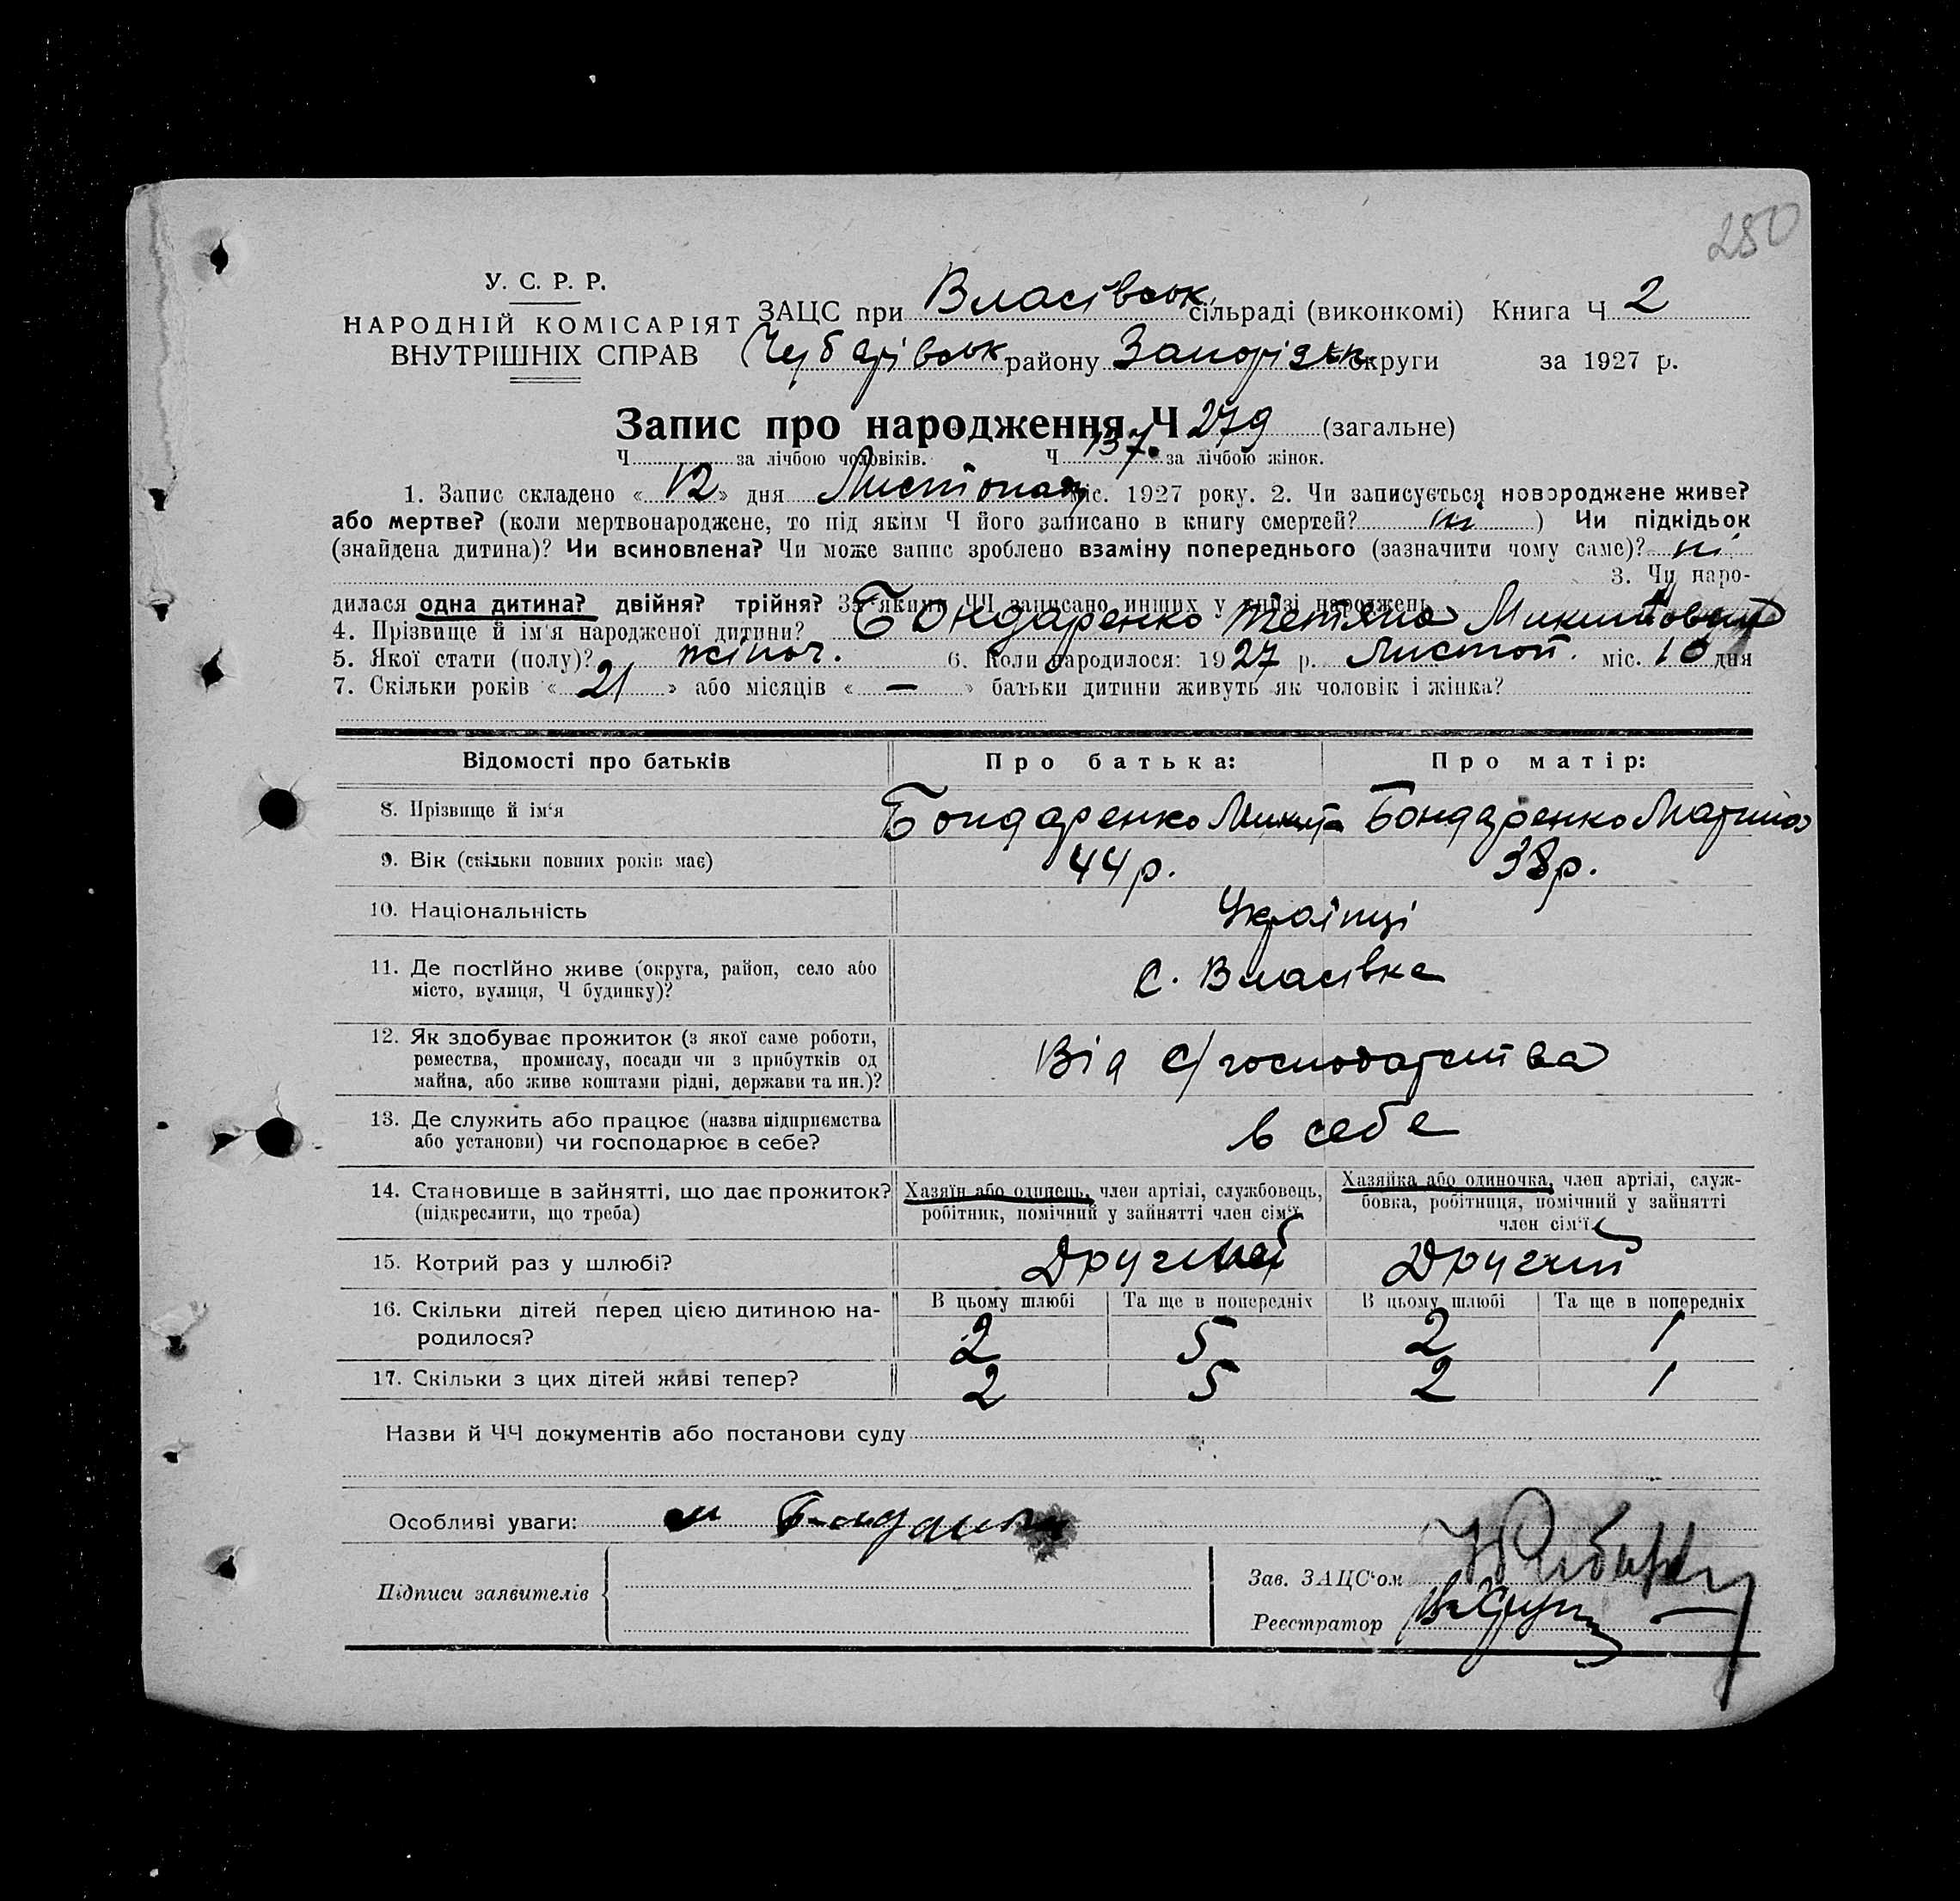 280
У. С. Р. Р.
НАРОДНІЙ КОМІСАРІЯТ
ВНУТРІШНІХ СПРАВ
ЗАЦС при Власівськ. сільраді (виконкомі) Книга Ч 2
Чубарівськ. району Запоріжк. округи за 1927 р.
Запис про народження Ч 279 (загальне)
Ч за лічбою чоловіків. Ч 137. за лічбою жінок.
1. Запис складено « 12 » дня Листопад міс. 1927 року. 2. Чи записується новороджене живе?
або мертве? (коли мертвонароджене, то під яким Ч його записано в книгу смертей? ні ) Чи підкідьок
(знайдена дитина)? Чи всиновлена? Чи може запис зроблено взаміну попереднього (зазначити чому саме)? ні
3. Чи наро-
дилася одна дитина? двійня? трійня? За якими ЧЧ записано инших у книзі народжень
4. Прізвище й ім'я народженої дитини? Бондаренко Тетяна
5. Якої стати (полу)? жіноч. 6. Коли народилося: 1927 р. Листоп. міс. 10 дня
7. Скільки років « 21 » або місяців « — » батьки дитини живуть як чоловік і жінка?
Відомості про батьків Про батька: Про матір:
8. Прізвище й ім'я Бондаренко Микита Бондаренко Марина
9. Вік (скільки повних років має) 44 р. 38 р.
10. Національність Українці
11. Де постійно живе (округа, район, село або
місто, вулиця, Ч будинку)? С. Власівка
12. Як здобуває прожиток (з якої саме роботи,
ремества, промислу, посади чи з прибутків од
майна, або живе коштами рідні, держави та ин.)? Від с/господарства
13. Де служить або працює (назва підприємства
або установи) чи господарює в себе? в себе
14. Становище в зайнятті, що дає прожиток?
(підкреслити, що треба)
Хазяїн або одинець, член артілі, службовець,
робітник, помічний у зайнятті член сім'ї
Хазяйка або одиночка, член артілі, служ-
бовка, робітниця, помічний у зайнятті
член сім'ї
15. Котрий раз у шлюбі? Другий Другий
16. Скільки дітей перед цією дитиною на-
родилося?
В цьому шлюбі Та ще в попередніх В цьому шлюбі Та ще в попередніх
2 5 2 1
17. Скільки з цих дітей живі тепер? 2 5 2 1
Назви й ЧЧ документів або постанови суду
Особливі уваги:
Підписи заявителів
Зав. ЗАЦС'ом
Реєстратор